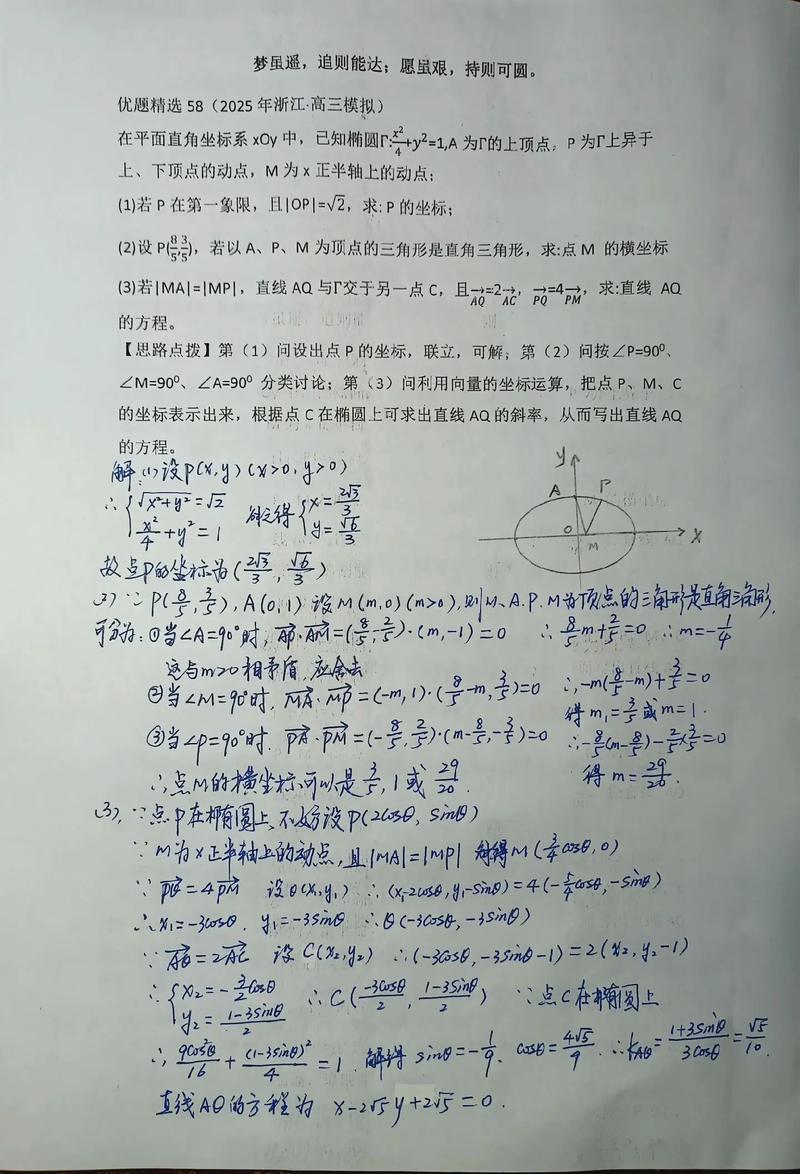 梦虽遥，追则能达；愿虽艰，持则可圆。
优题精选 58（2025 年浙江·高三模拟）
在平面直角坐标系 xOy 中，已知椭圆Γ:x²/4+y²=1,A 为Γ的上顶点，P 为Γ上异于
上、下顶点的动点，M 为 x 正半轴上的动点；
(1)若 P 在第一象限，且|OP|=√2，求: P 的坐标；
(2)设 P(8/5,3/5)，若以 A、P、M 为顶点的三角形是直角三角形，求:点 M 的横坐标
(3)若|MA|=|MP|，直线 AQ 与Γ交于另一点 C，且→AQ=2→AC，→PQ=4→PM，求:直线 AQ
的方程。
【思路点拨】第（1）问设出点 P 的坐标，联立，可解；第（2）问按∠P=90⁰、
∠M=90⁰、∠A=90⁰ 分类讨论；第（3）问利用向量的坐标运算，把点 P、M、C
的坐标表示出来，根据点 C 在椭圆上可求出直线 AQ 的斜率，从而写出直线 AQ
的方程。
解：(1)设P(x,y)(x>0,y>0)
∴{√(x²+y²)=√2 x²/4+y²=1 解之得{x=2√3/3 y=√6/3
y A P O M x
故点P的坐标为(2√3/3,√6/3)
(2)∵P(8/5,3/5),A(0,1)设M(m,0)(m>0),则M、A、P、M为顶点的三角形是直角三角形,
可分为:①当∠A=90°时,→AP·→AM=(8/5,-2/5)·(m,-1)=0 ∴8/5m+2/5=0 ∴m=-1/4
这与m>0相矛盾,应舍去
②当∠M=90°时,→MA·→MP=(-m,1)·(8/5-m,3/5)=0 ∴-m(8/5-m)+3/5=0
得m₁=3/5或m=1.
③当∠P=90°时.→PA·→PM=(-8/5,2/5)·(m-8/5,-3/5)=0 ∴-8/5(m-8/5)-2/5×3/5=0
∴点M的横坐标可以是3/5,1或29/20. 得m=29/20.
(3),∵点P在椭圆上,不妨设P(2cosθ,sinθ)
∵M为x正半轴上的动点,且|MA|=|MP| 解得M(3/4cosθ,0)
∵→PQ=4→PM 设Q(x₁,y₁) ∴(x₁-2cosθ,y₁-sinθ)=4(-5/4cosθ,-sinθ)
∴x₁=-3cosθ,y₁=-3sinθ ∴Q(-3cosθ,-3sinθ)
∵→AQ=2→AC 设C(x₂,y₂) ∴(-3cosθ,-3sinθ-1)=2(x₂,y₂-1)
∴{x₂=-3/2cosθ y₂=(1-3sinθ)/2 ∴C(-3cosθ/2,(1-3sinθ)/2) ∵点C在椭圆上
∴9cos²θ/16+(1-3sinθ)²/4=1 解得sinθ=-1/9,cosθ=4√5/9 ∴k_AQ=(1+3sinθ)/3cosθ=√5/10.
直线AQ的方程为 x-2√5y+2√5=0.